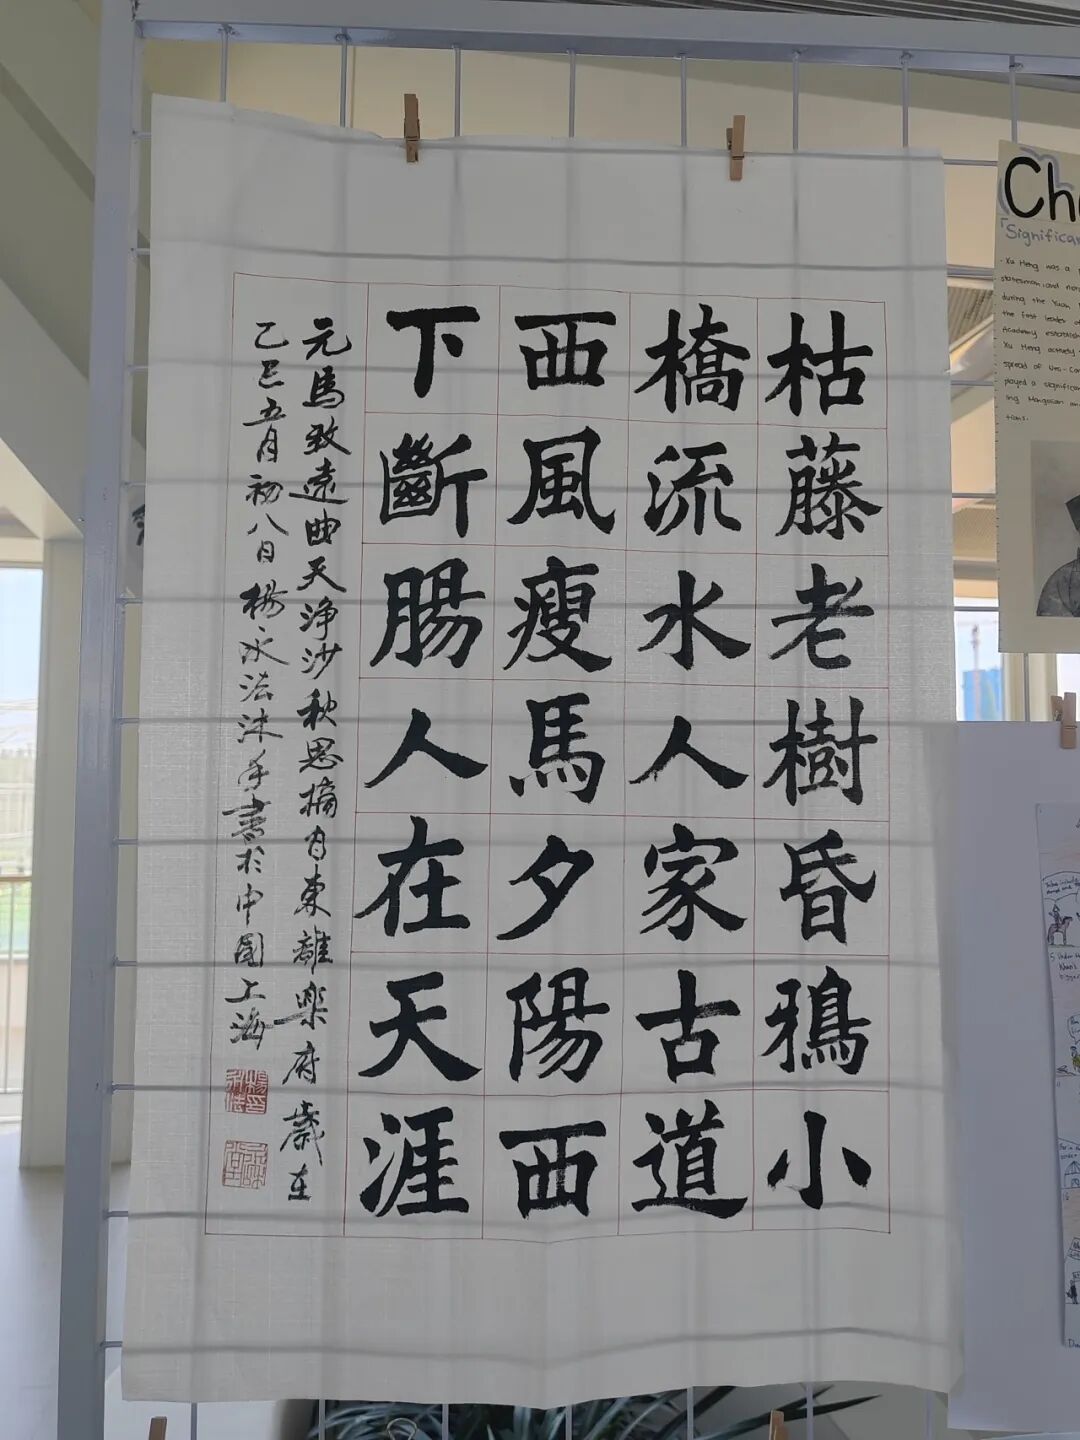 枯藤老樹昏鴉小
橋流水人家古道
西風瘦馬夕陽西
下斷腸人在天涯
元馬致遠曲天淨沙秋思摘自東籬樂府歲在
乙巳五月初八日楊永法沐手書於中國上海
Ch
「Significan
- Xu Heng was a
statesman and
during the Yuan
the first leader
Academy establish
Xu Heng actively
spread of Neo-Con
played a significan
ing Mongolian an
tions.